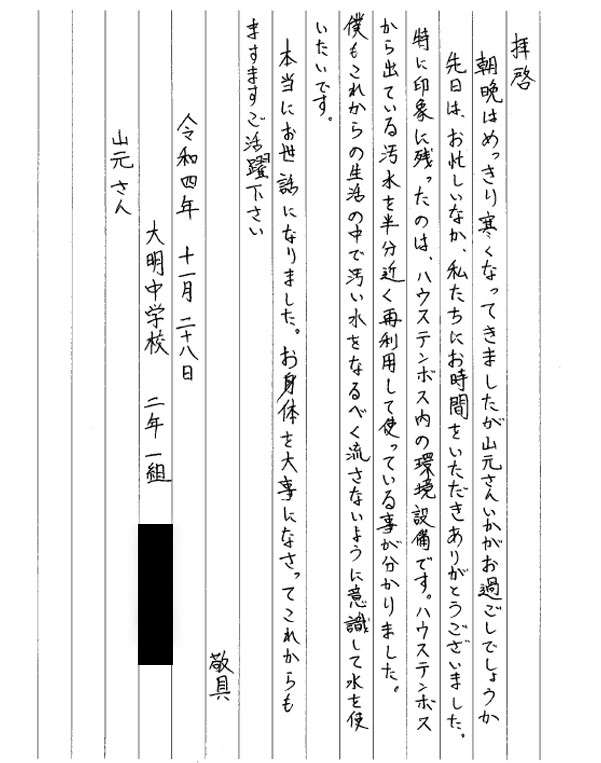 拝啓
朝晩はめっきり寒くなってきましたが山元さんいかがお過ごしでしょうか
先日は、お忙しいなか、私たちにお時間をいただきありがとうございました。
特に印象に残ったのは、ハウステンボス内の環境設備です。ハウステンボス
から出ている汚水を半分近く再利用して使っている事が分かりました。
僕もこれからの生活の中で汚い水をなるべく流さないように意識して水を使
いたいです。
本当にお世話になりました。お身体を大事になさってこれからも
ますますご活躍下さい
敬具
令和四年 十一月 二十八日
大明中学校 二年一組
山元さん